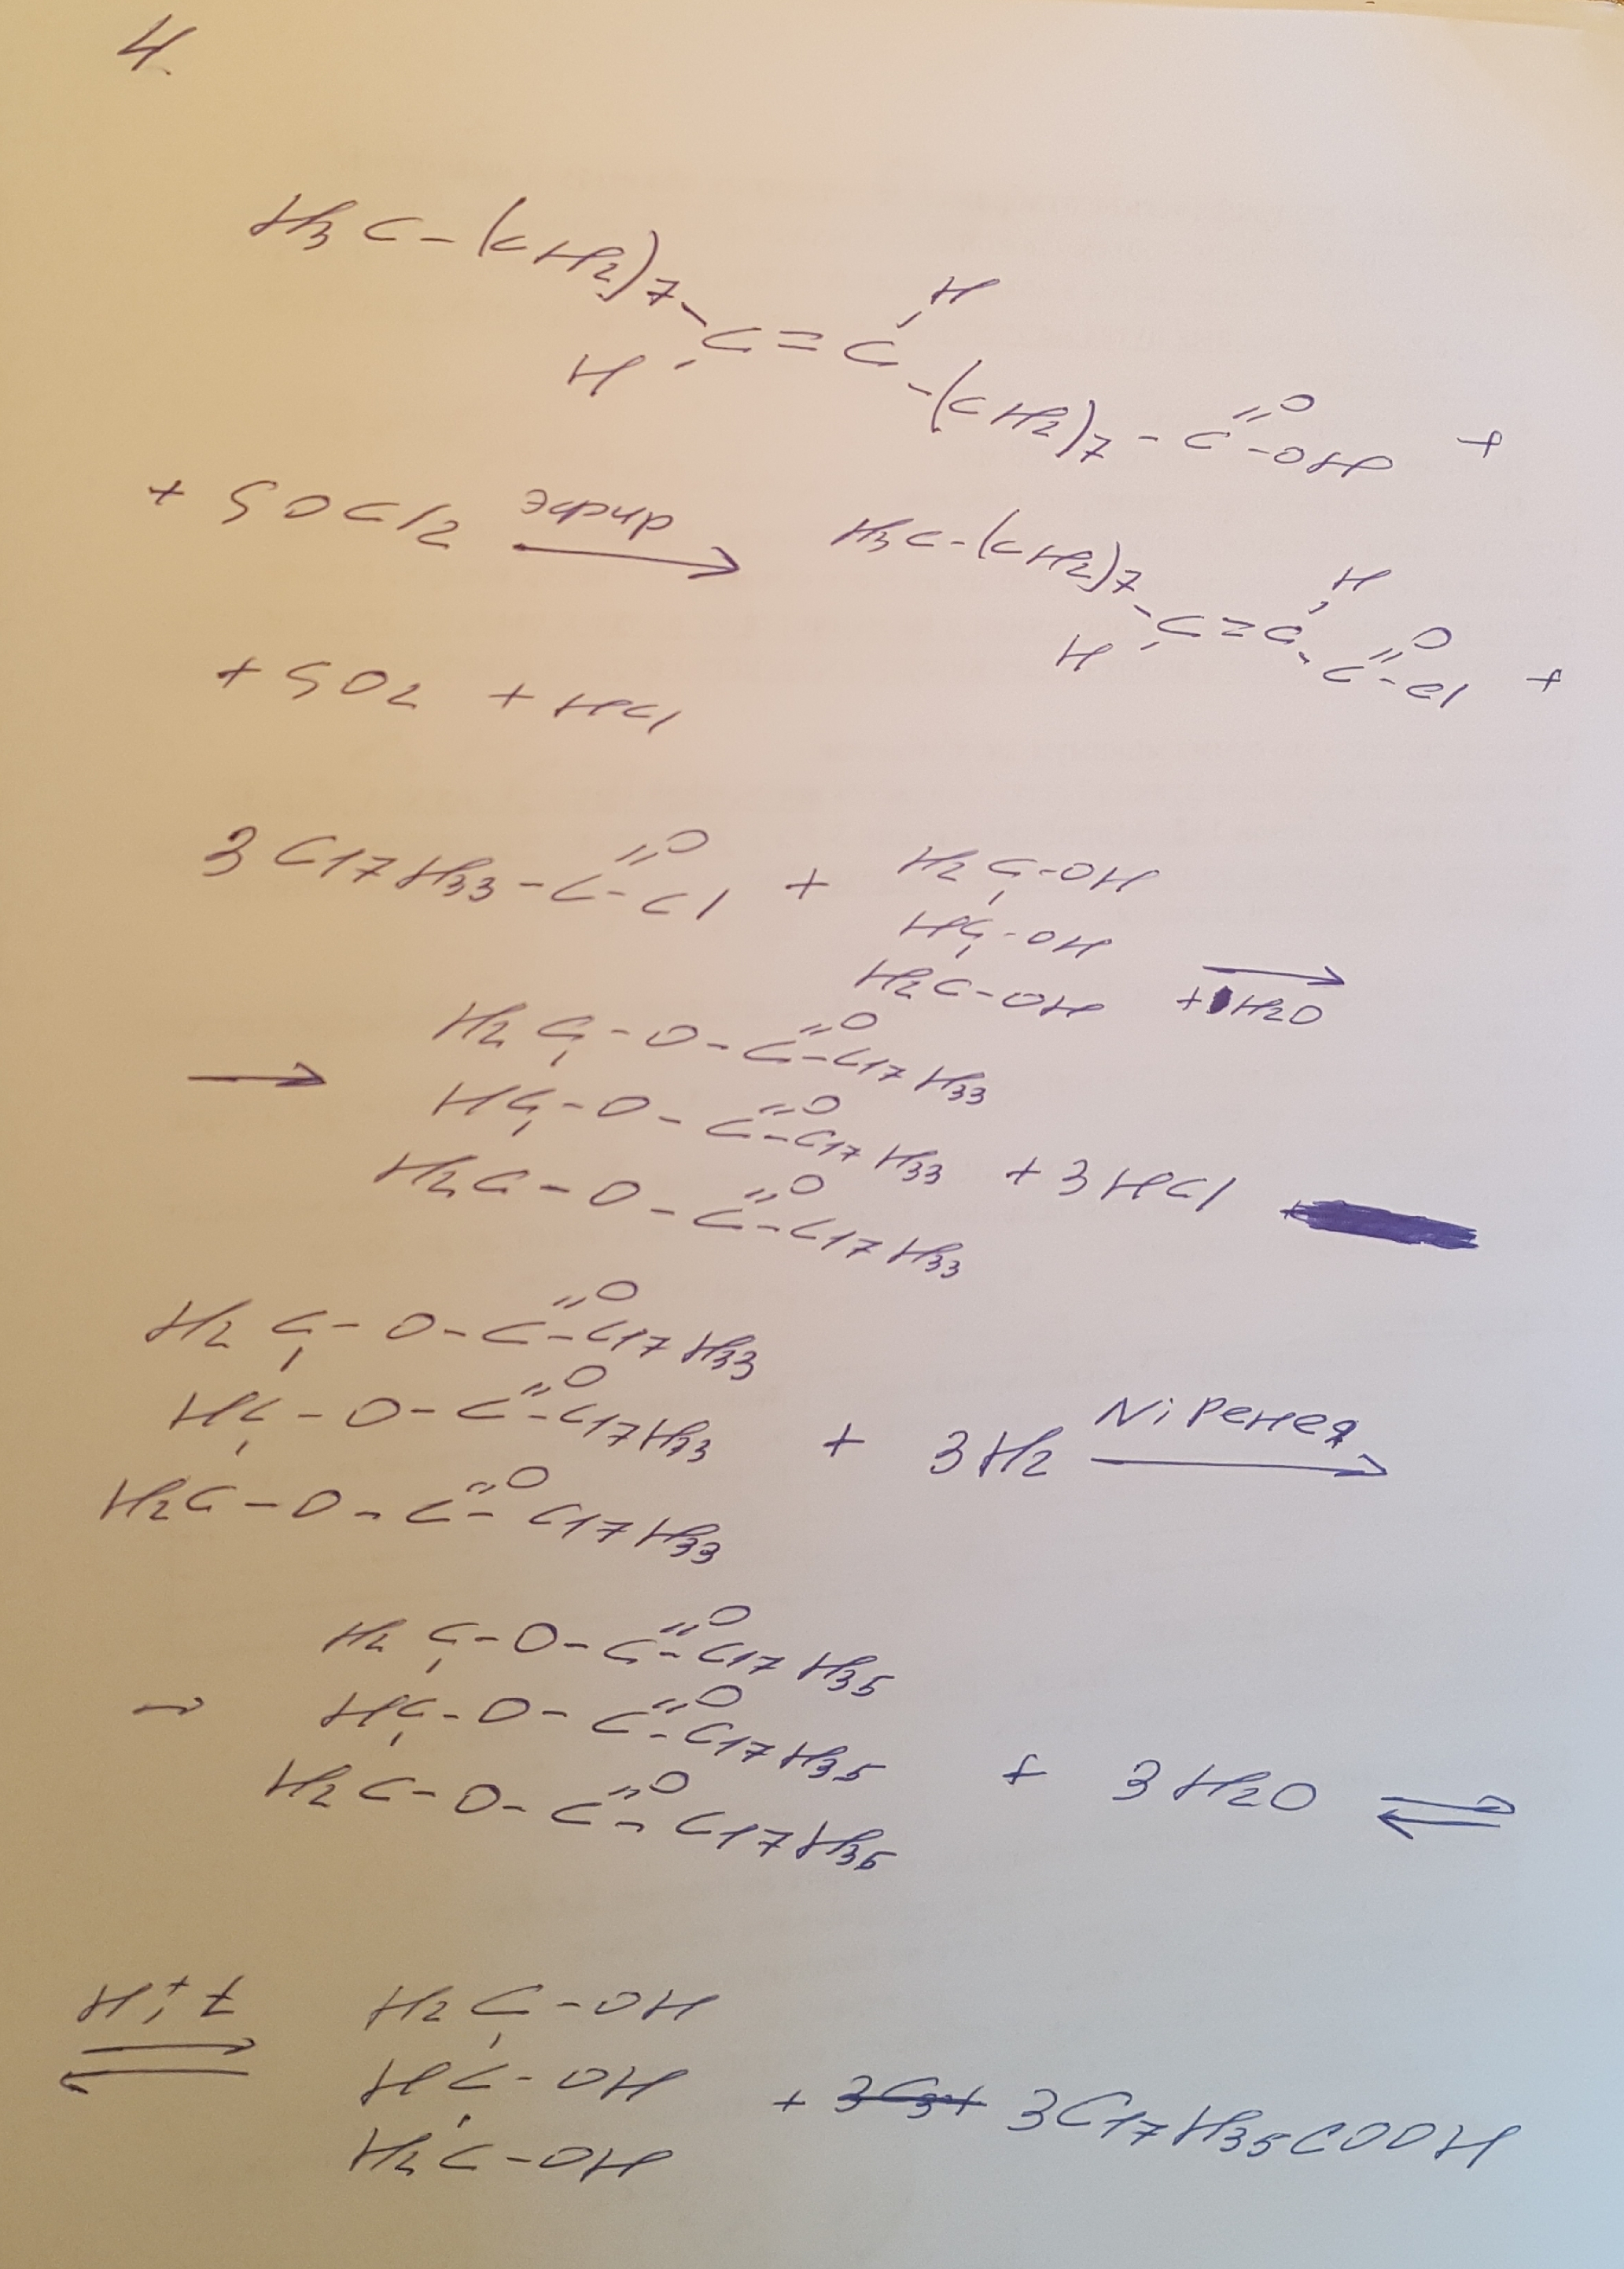 4.
H3C-(CH2)7
H
H
C=C
-(CH2)7-C
=O
-OH +
+ SOCl2 эфир →
H3C-(CH2)7
H
H
C=C
C
=O
-Cl +
+ SO2 + HCl
3C17H33-C
=O
-Cl + H2C-OH
HC-OH
H2C-OH → +H2O
→ H2C-O-C=O
-C17H33
HC-O-C=O
-C17H33 + 3HCl
H2C-O-C=O
-C17H33
H2C-O-C=O
-C17H33
HC-O-C=O
-C17H33 + 3H2 Ni Ренея →
H2C-O-C=O
-C17H33
→ H2C-O-C=O
-C17H35
HC-O-C=O
-C17H35 + 3H2O ⇄
H2C-O-C=O
-C17H35
H+, t ⇄
H2C-OH
HC-OH + 3C17H35COOH
H2C-OH